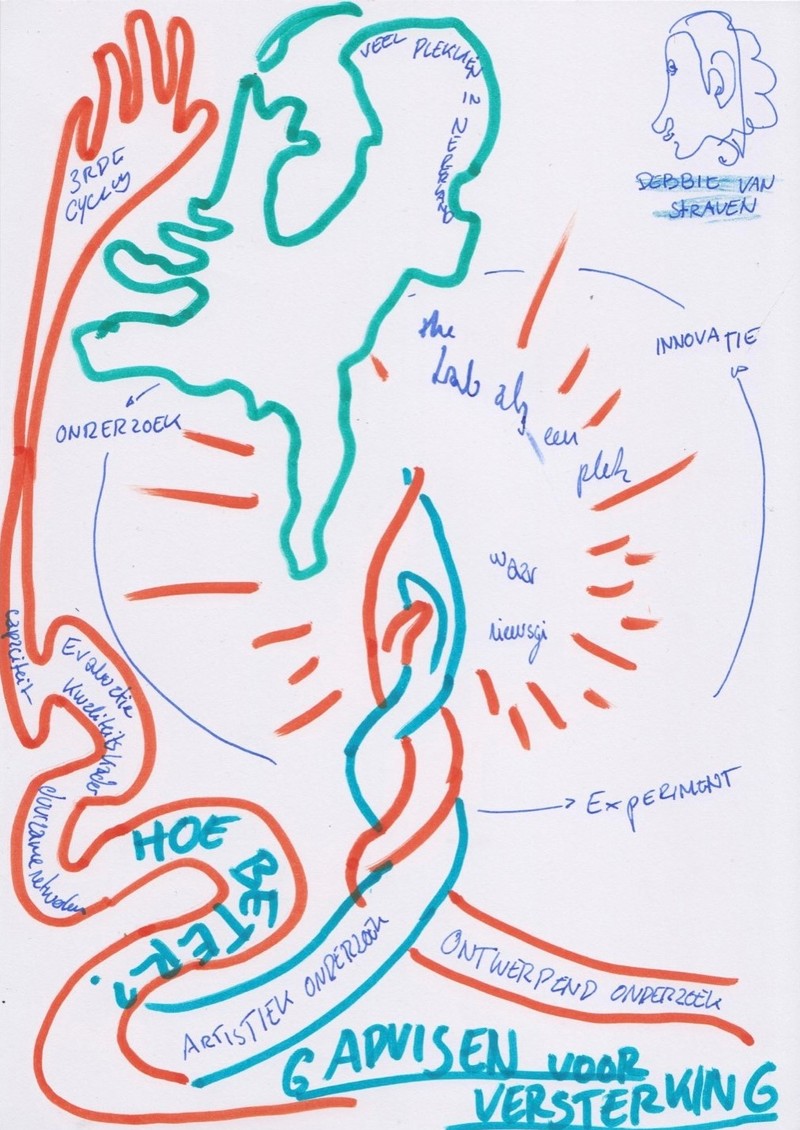 VEEL PLEKKEN
IN
NEDERLAND
DEBBIE VAN
STRAVEN
3RDE
CYCLUS
the
Lab als
een
plek
INNOVATIE
ONDERZOEK
waar
nieuwsgi
capaciteit
Evaluatie
Kwaliteits kader
duurzame netwerken
EXPERIMENT
HOE
BETER?
ARTISTIEK ONDERZOEK
ONTWERPEND ONDERZOEK
6 ADVISEN VOOR
VERSTERKING